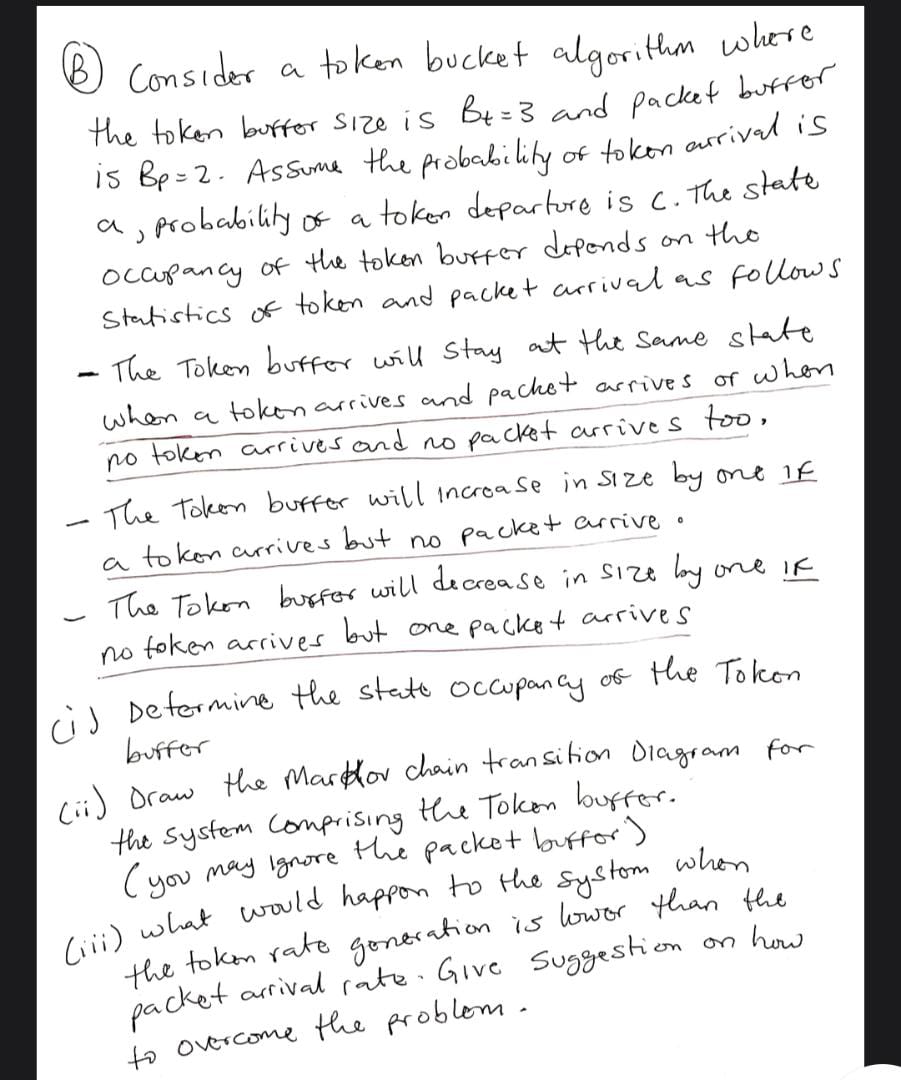 (B) Consider a token bucket algorithm where
the token buffer size is Bt = 3 and packet buffer
is Bp = 2. Assume the probability of token arrival is
a, probability of a token departure is c. The state
occupancy of the token buffer depends on the
statistics of token and packet arrival as follows
- The Token buffer will stay at the same state
when a token arrives and packet arrives or when
no token arrives and no packet arrives too.
- The Token buffer will increase in size by one if
a token arrives but no packet arrive.
- The Token buffer will decrease in size by one if
no token arrives but one packet arrives
(i) Determine the state occupancy of the Token
buffer
(ii) Draw the Markov chain transition Diagram for
the system comprising the Token buffer.
(you may ignore the packet buffer)
(iii) what would happen to the system when
the token rate generation is lower than the
packet arrival rate. Give suggestion on how
to overcome the problem.